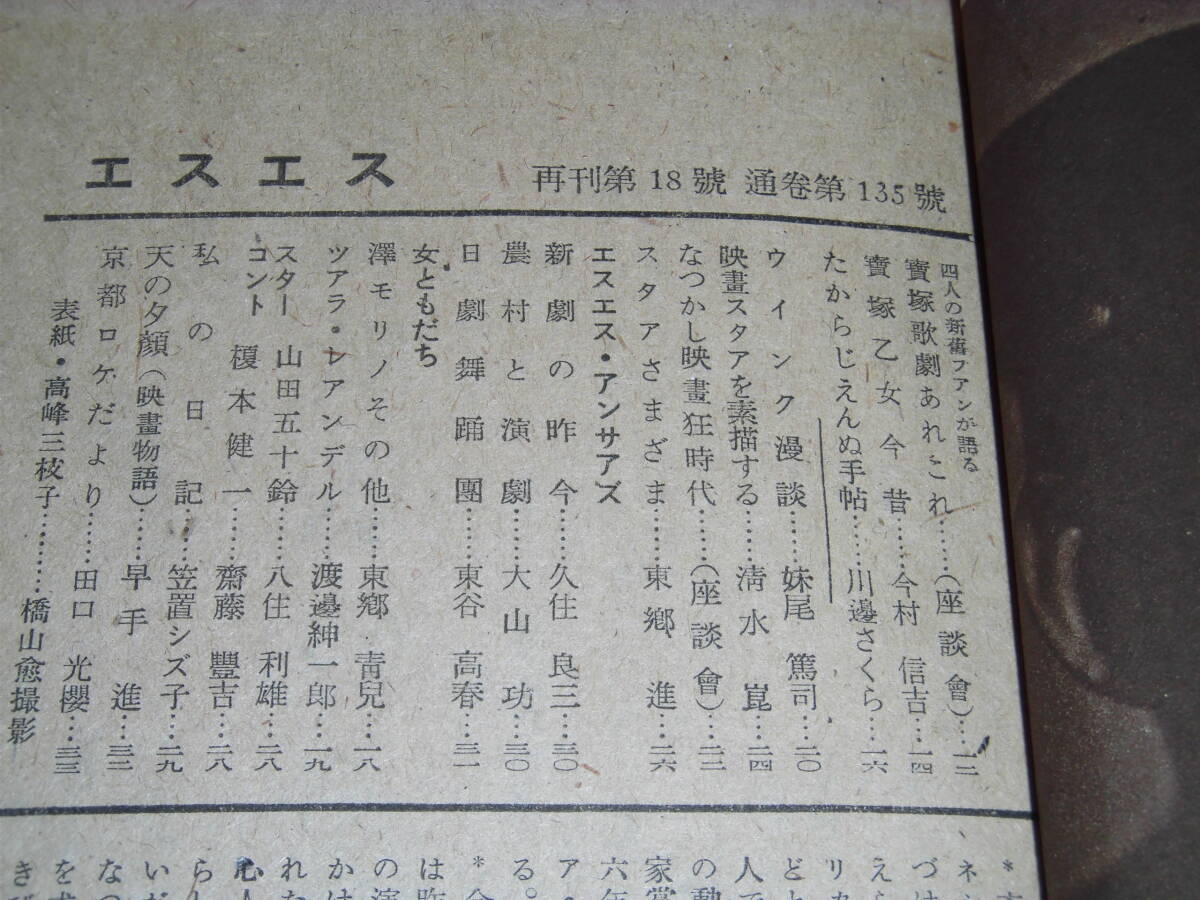 エスエス
再刊第18號 通卷第135號
四人の新舊フアンが語る
寶塚歌劇あれこれ……(座談會)…一二
寶塚乙女今昔……今村信吉…一四
たからじえんぬ手帖……川邊さくら…一六
ウインク漫談……妹尾篤司…二〇
映畫スタアを素描する……淸水崑…二四
なつかし映畫狂時代……(座談會)…二二
スタアさまざま……東鄕進…二六
エスエス・アンサアズ
新劇の昨今……久住良三…三〇
農村と演劇……大山功…三〇
日劇舞踊團……東谷高春…三一
女ともだち
澤モリノその他……東鄕靑兒…一八
ツアラ・レアンデル……渡邊紳一郎…一九
スター 山田五十鈴……八住利雄…二八
コント 榎本健一……齋藤豐吉…二八
私の日記……笠置シズ子…二九
天の夕顏(映畫物語)……早手進…三二
京都ロケだより……田口光櫻…三三
表紙・高峰三枝子………橋山愈撮影
ネ
づけ
えら
リカ
どと
人で
の動
家賞
六年
ア・
る。
*今
は昨
の演
かけ
れた
心人
らし
いが
なつ